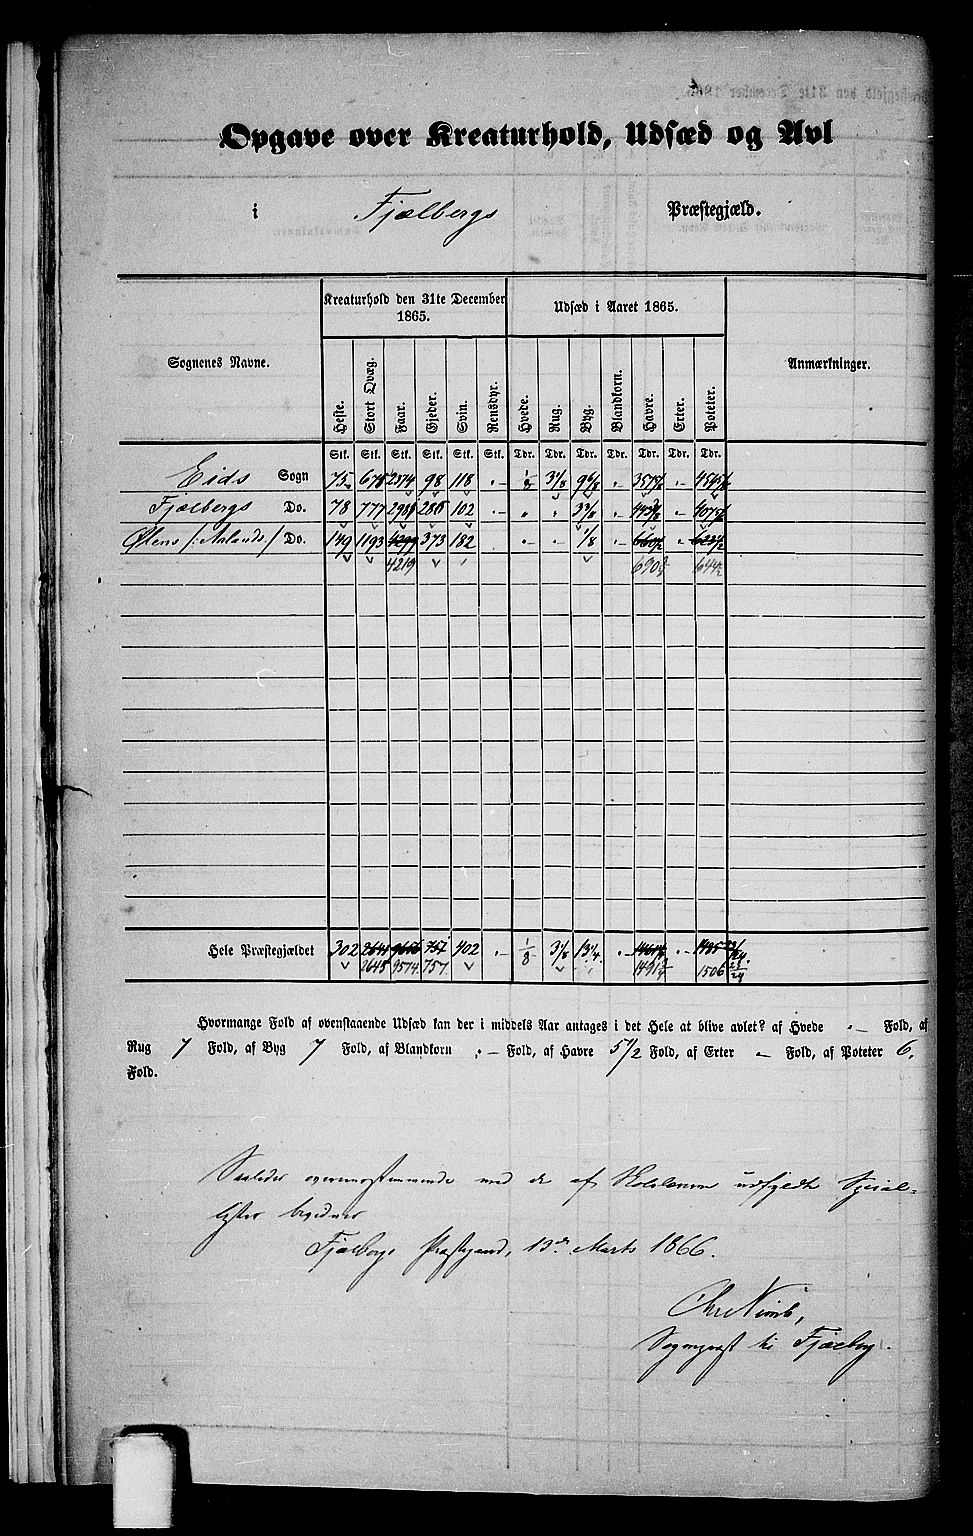 Opgave over Kreaturhold, Udsæd og Avl
i Fjælbergs Præstegjæld.
Kreaturhold den 31te December 1865. Udsæd i Aaret 1865.
Sognenes Navne. Anmærkninger.
Heste. Stort Qvæg. Faar. Gjeder. Svin. Rensdyr. Hvede. Rug. Byg. Blandkorn. Havre. Erter. Poteter.
Stk. Stk. Stk. Stk. Stk. Stk. Tdr. Tdr. Tdr. Tdr. Tdr. Tdr. Tdr.
Eids Sogn 75 675 2374 98 118 - 1/8 3 1/8 9 6/8 -
Fjælbergs Do. 78 777 286 102 - 3 3/8 -
Ølens /: Aalands :/ Do. 149 1193 373 182 - - 1/8 -
4219 690 644
Hele Præstegjældet 302 2641 757 402 - 1/8 3 1/8 13 1/4 -
2645 9574 757 1491 1506
Hvormange Fold af ovenstaaende Udsæd kan der i middels Aar antages i det Hele at blive avlet? af Hvede - Fold, af
Rug 7 Fold, af Byg 7 Fold, af Blandkorn - Fold, af Havre 5 1/2 Fold, af Erter - Fold, af Poteter 6.
Fold.
Saaledes overensstemmende med de af udfyldte Special=
lister bevidnes
Fjælbergs Præstegaard, 13de Marts 1866.
Chr Nimb,
Sognepræst til Fjælberg.